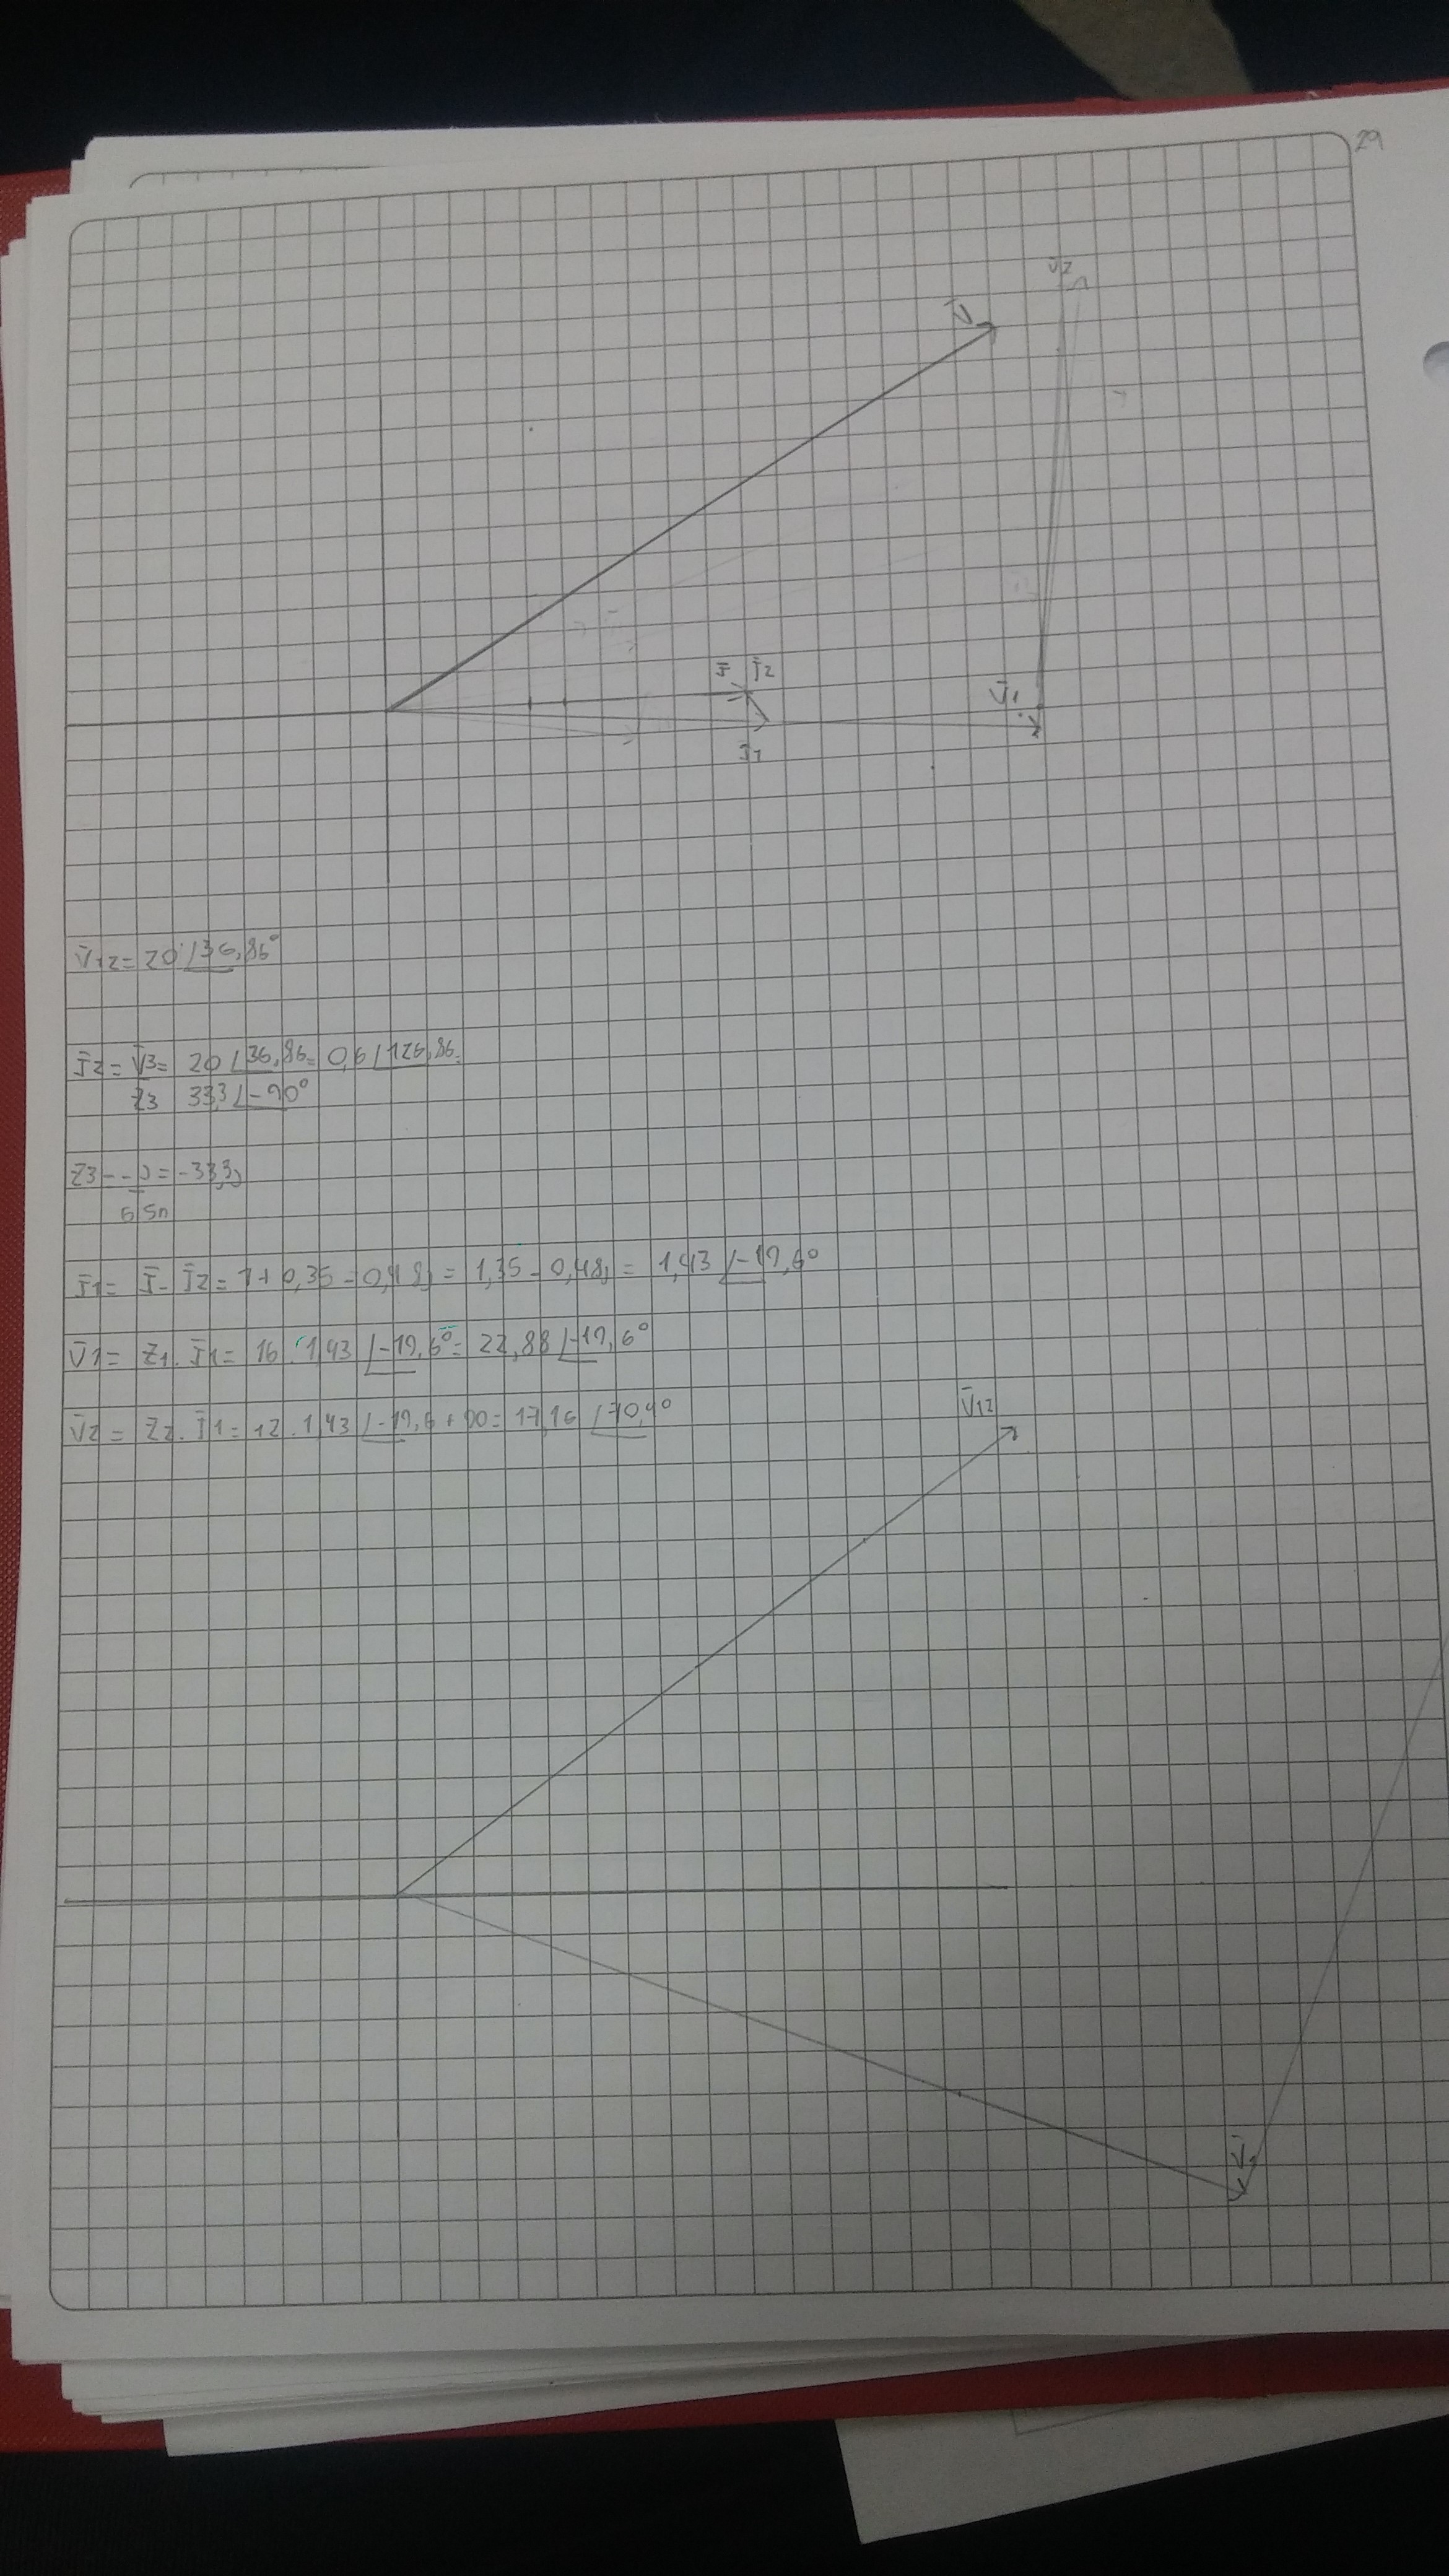 29
V̄2
V̄
Ī Ī2
V̄1
Ī1
V̄12 = 20 ∠36,86°
Ī2 = V̄3 = 20 ∠36,86 = 0,6 ∠126,86
Z3 33,3 ∠-90°
Z3 = -j = -33,3j
Ī1 = Ī - Ī2 = 1 + 0,35 - 0,48j = 1,35 - 0,48j = 1,43 ∠-19,6°
V̄1 = Z1 . Ī1 = 16 . 1,43 ∠-19,6° = 22,88 ∠-19,6°
V̄2 = Z2 . Ī1 = 12 . 1,43 ∠-19,6 + 90 = 17,16 ∠70,4°
V̄12
V̄1